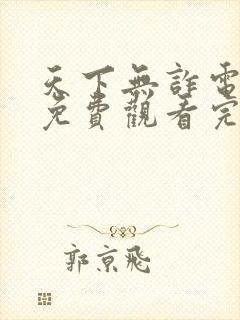 天下無詐電
免費觀看完
郭京飛